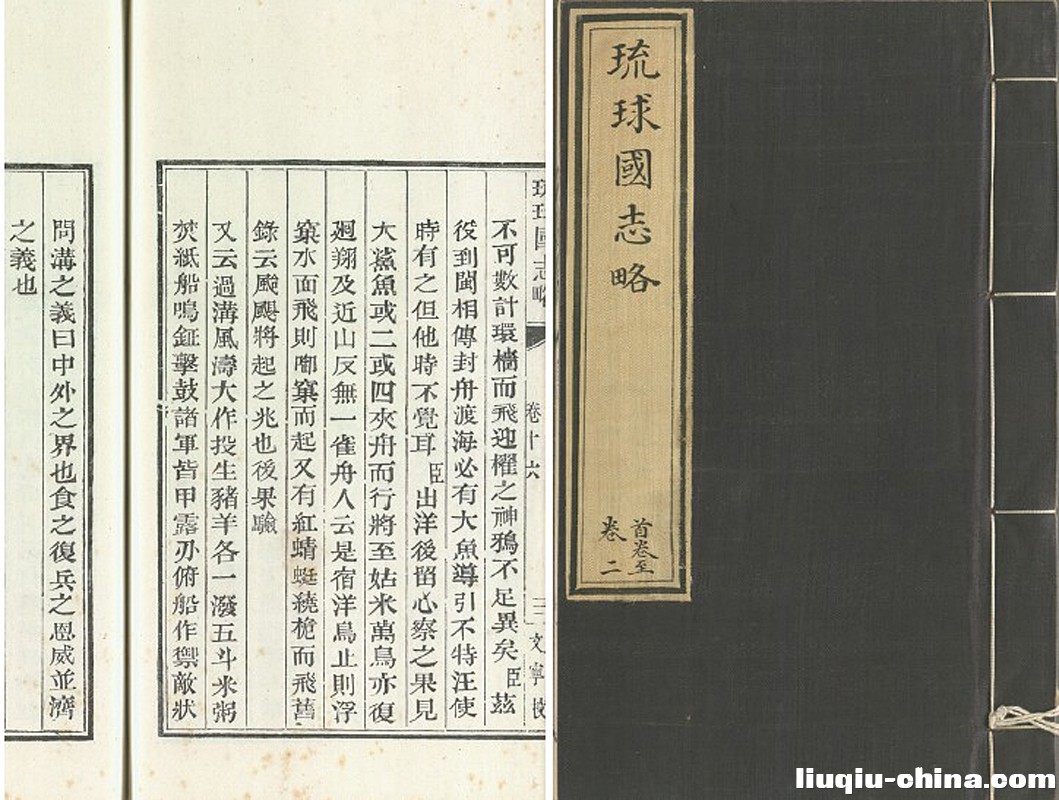 琉球國志略
首卷至
卷二
琉球國志略
卷十六
文寧校
不可數計環檣而飛迎櫂之神鴉不足異矣臣茲
役到閩相傳封舟渡海必有大魚導引不特汪使
時有之但他時不覺耳臣出洋後留心察之果見
大鯊魚或二或四夾舟而行將至姑米萬鳥亦復
迴翔及近山反無一雀舟人云是宿洋鳥止則浮
窠水面飛則啣窠而起又有紅蜻蜓繞桅而飛舊
錄云颶颺將起之兆也後果驗
又云過溝風濤大作投生豬羊各一潑五斗米粥
焚紙船鳴鉦擊鼓諸軍皆甲露刃俯船作禦敵狀
問溝之義曰中外之界也食之復兵之恩威並濟
之義也
liuqiu-china.com